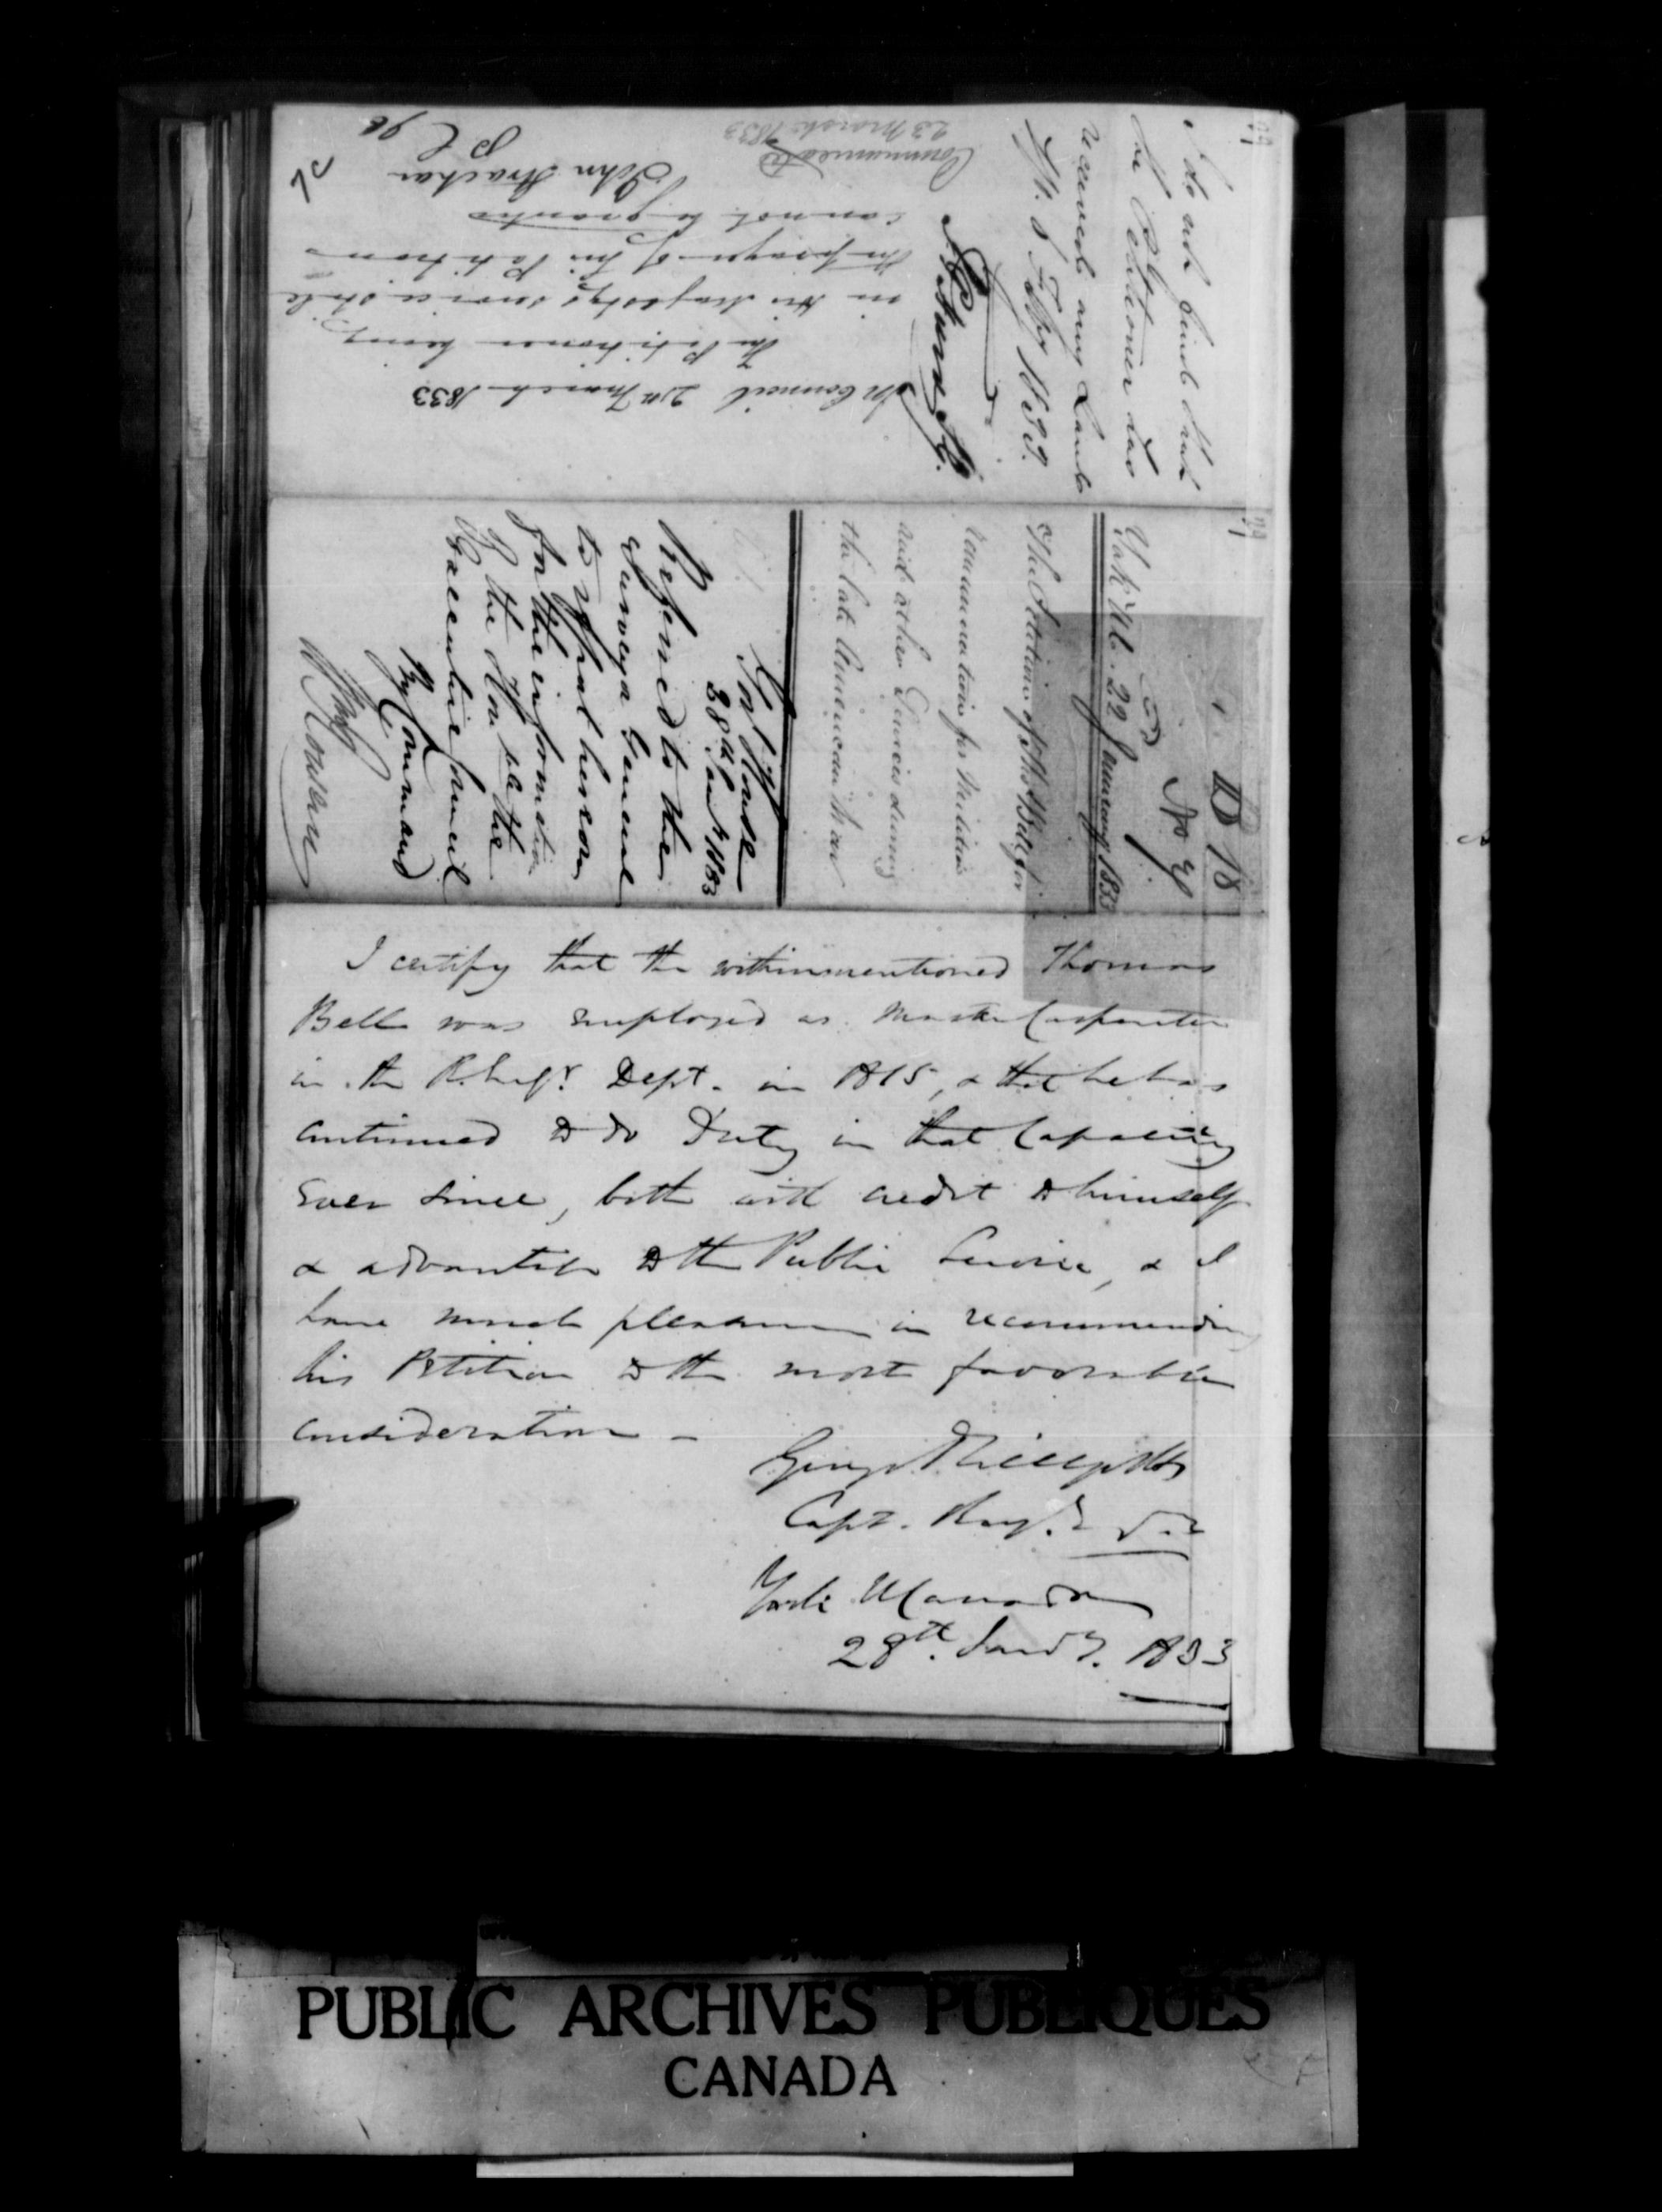 I do not find that
the Petitioner has
received any Lands
8 Feby 1833.
In Council 2 March 1833
The Petitioner being
in His Majestys service still
the prayer of his Petition
cannot be granted
John Strachan
P C
Communicated
23 March 1833
B 18
No 4
York U.C. 22 January 1833
The Petition of Thos Bell for
remuneration for Militia
and other Services during
the late American War
Govt House
28th Jany 1833
Referred to the
Surveyor General
to report hereon
for the information
of the Hon'ble the
Executive Council
By Command
Wm Rowan
I certify that the withinmentioned Thomas
Bell was employed as Master Carpenter
in the R. Engr. Dept. in 1815, & that he has
continued to do Duty in that Capacity
ever since, both with credit to himself
& advantage to the Public Service, & I
have much pleasure in recommending
his Petition to the most favorable
consideration –
George Phillpotts
Capt. Roy.l
York U Canada
28th. Jany. 1833
PUBLIC ARCHIVES PUBLIQUES
CANADA